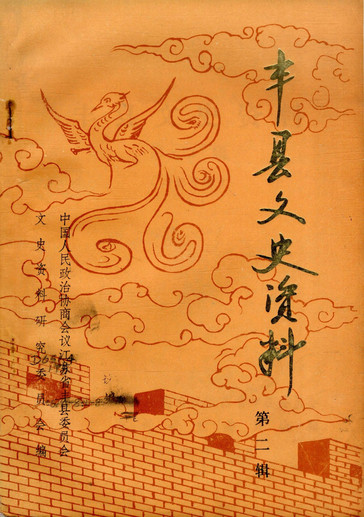 丰县文史资料
第二辑
中国人民政治协商会议江苏省丰县委员会
文史资料研究委员会编